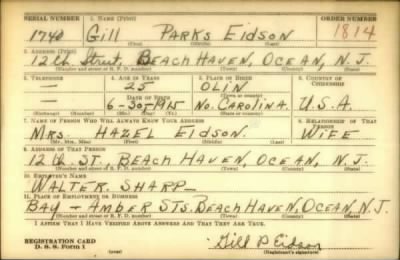 SERIAL NUMBER 1. NAME (Print) ORDER NUMBER
1740 Gill PARKS EIDSON 1814
(First) (Middle) (Last)
2. ADDRESS (Print)
12th Street, BEACH HAVEN, OCEAN, N.J.
(Number and street or R. F. D. number) (Town) (County) (State)
3. TELEPHONE 4. AGE IN YEARS 5. PLACE OF BIRTH 6. COUNTRY OF CITIZENSHIP
— 25 OLIN
DATE OF BIRTH (Town or county)
— 6-30-1915 NO. CAROLINA. U.S.A.
(Mo.) (Day) (Yr.) (State or country)
7. NAME OF PERSON WHO WILL ALWAYS KNOW YOUR ADDRESS 8. RELATIONSHIP OF THAT PERSON
MRS. HAZEL EIDSON. WIFE
(Mr., Mrs., Miss) (First) (Middle) (Last)
9. ADDRESS OF THAT PERSON
12th ST., BEACH HAVEN, OCEAN, N.J.
(Number and street or R. F. D. number) (Town) (County) (State)
10. EMPLOYER'S NAME
WALTER SHARP
11. PLACE OF EMPLOYMENT OR BUSINESS
BAY - AMBER STS. BEACH HAVEN, OCEAN, N.J.
(Number and street or R. F. D. number) (Town) (County) (State)
I AFFIRM THAT I HAVE VERIFIED ABOVE ANSWERS AND THAT THEY ARE TRUE.
REGISTRATION CARD
D. S. S. Form 1
Gill P Eidson
(Registrant's signature)